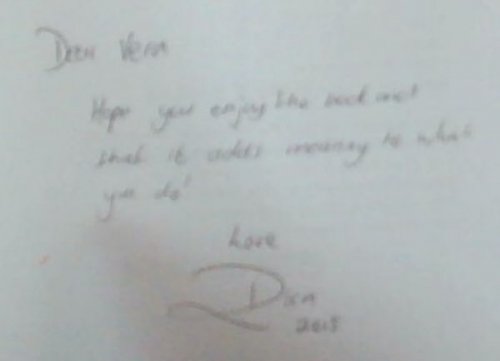 Dear Vera
Hope you enjoy the book and
that it adds meaning to what
you do!
Love
Dan
2015